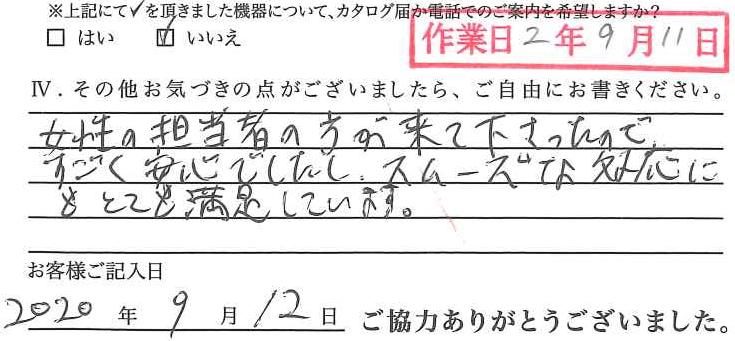 ※上記にて✓を頂きました機器について、カタログ届か電話でのご案内を希望しますか?
☐ はい ☑ いいえ
作業日2年9月11日
Ⅳ．その他お気づきの点がございましたら、ご自由にお書きください。
女性の担当者の方が来て下さったので、
すごく安心でしたし、スムーズな対応に
もとても満足しています。
お客様ご記入日
2020年9月12日 ご協力ありがとうございました。